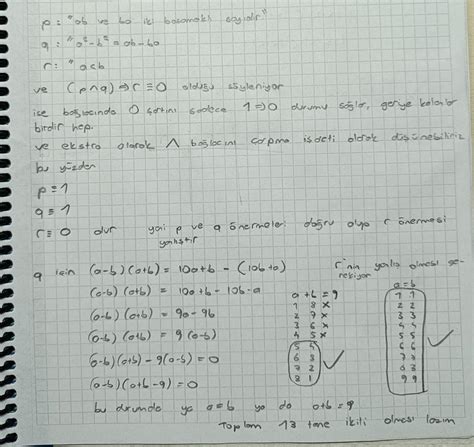 p: "ab ve ba iki basamaklı sayıdır"
q: "a²-b² = ab-ba
r: "a≤b
ve (p∧q)⇒r ≡ 0 olduğu söyleniyor
ise bağlacında 0 şartını sadece 1⇒0 durumu sağlar, geriye kalanlar
birdir hep.
ve ekstra olarak ∧ bağlacını çarpma işareti olarak düşünebiliriz
bu yüzden
p≡1
q≡1
r≡0 dur yani p ve q önermeleri doğru olup r önermesi
yanlıştır
q için (a-b)(a+b) = 10a+b - (10b+a)
(a-b)(a+b) = 10a+b - 10b-a
(a-b)(a+b) = 9a-9b
(a-b)(a+b) = 9(a-b)
(a-b)(a+b)-9(a-b)=0
(a-b)(a+b-9)=0
bu durumda ya a=b ya da a+b=9
r'nin yanlış olması ge-
rekiyor
a+b=9
1 8 x
2 7 x
3 6 x
4 5 x
5 4
6 3
7 2
8 1
a=b
1 1
2 2
3 3
4 4
5 5
6 6
7 7
8 8
9 9
Toplam 13 tane ikili olması lazım